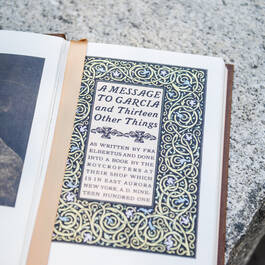 A MESSAGE
TO GARCIA
and Thirteen
Other Things
AS WRITTEN BY FRA
ELBERTUS AND DONE
INTO A BOOK BY THE
ROYCROFTERS AT
THEIR SHOP WHICH
IS IN EAST AURORA
NEW YORK, A.D. NINE-
TEEN HUNDRED ONE